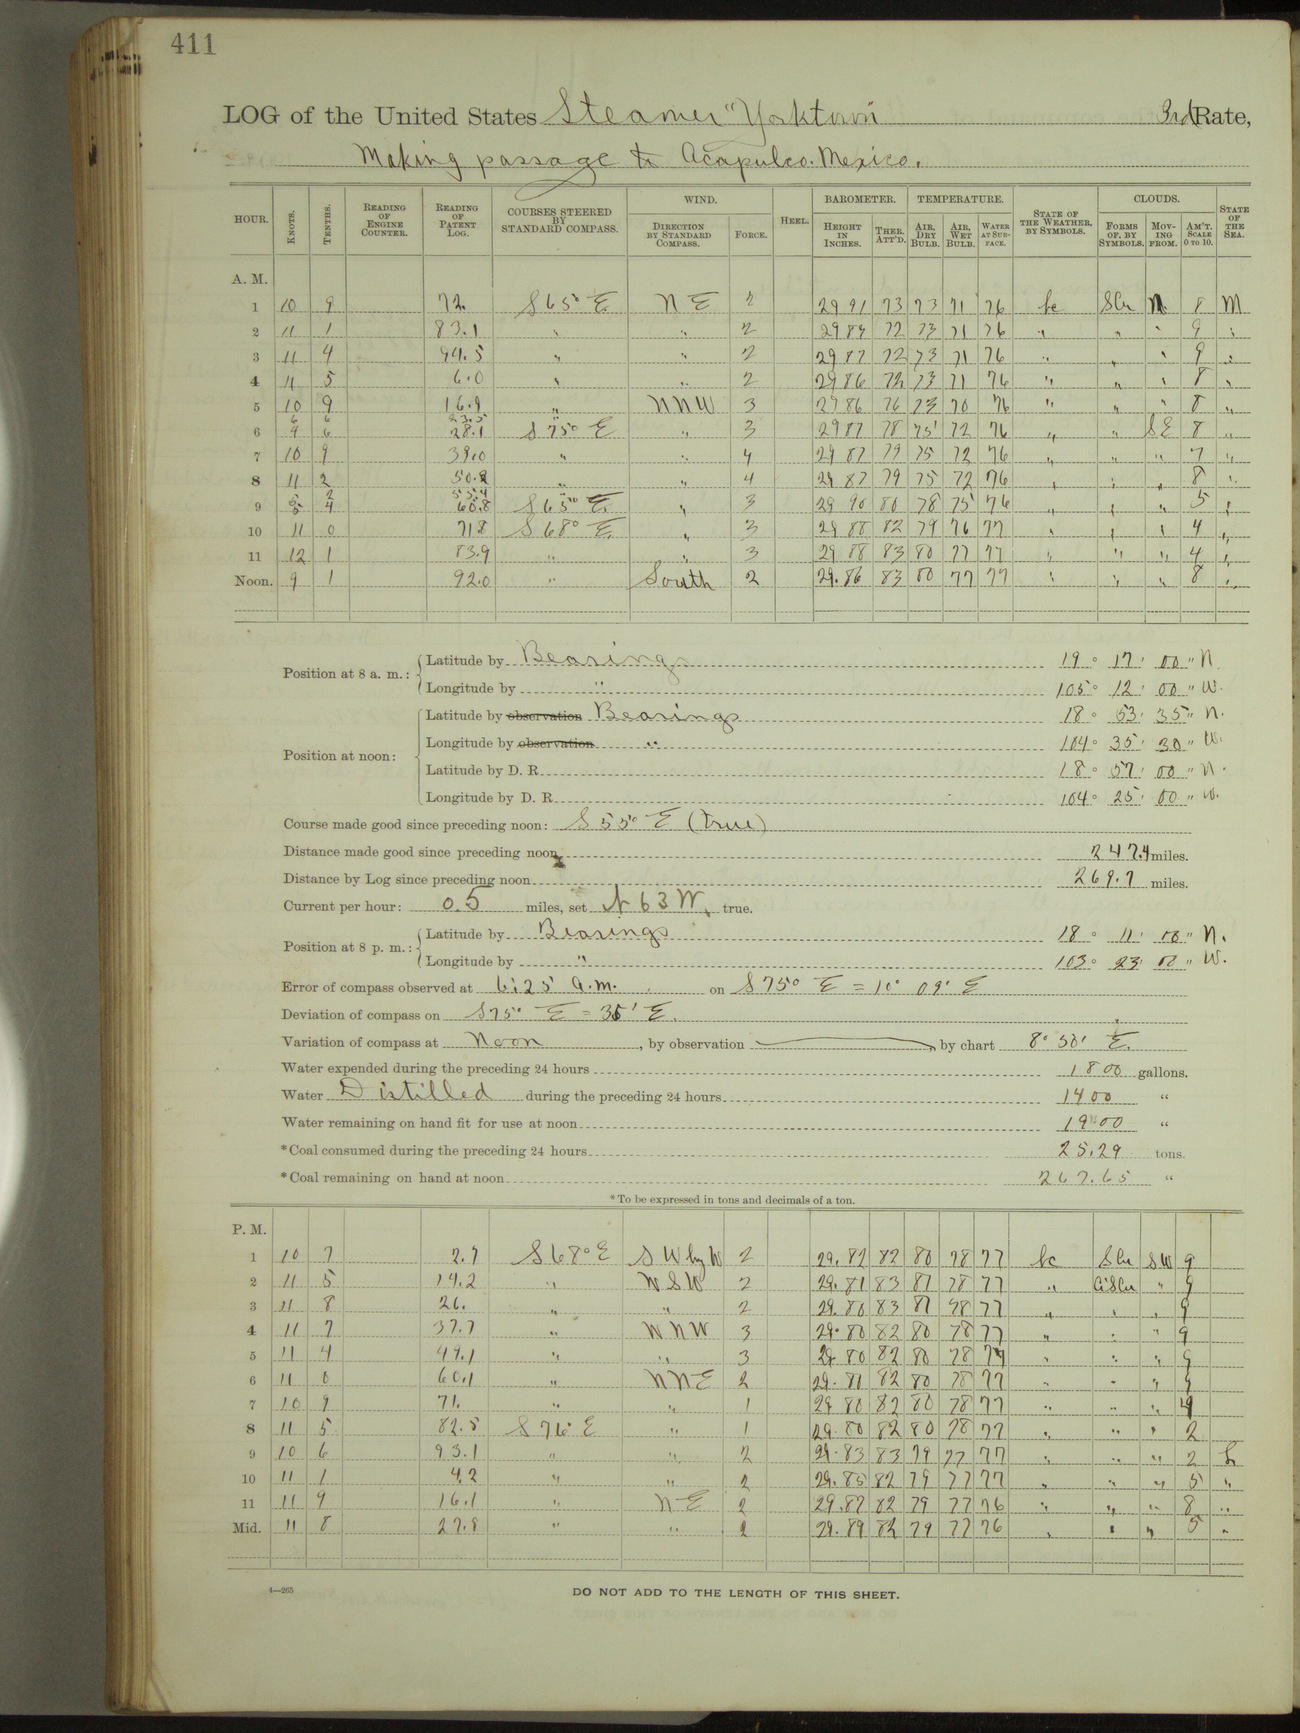 411
LOG of the United States Steamer "Yorktown" 3rd Rate,
Making passage to Acapulco. Mexico.
HOUR. KNOTS. TENTHS. READING OF ENGINE COUNTER. READING OF PATENT LOG. COURSES STEERED BY STANDARD COMPASS. WIND. DIRECTION BY STANDARD COMPASS. FORCE. HEEL. BAROMETER. HEIGHT IN INCHES. THER. ATT'D. TEMPERATURE. AIR, DRY BULB. AIR, WET BULB. WATER AT SURFACE. STATE OF THE WEATHER, BY SYMBOLS. CLOUDS. FORMS OF, BY SYMBOLS. MOVING FROM. AM'T. SCALE 0 TO 10. STATE OF THE SEA.
A. M.
1 10 9 72. S 65° E N E 2 29 91 73 73 71 76 bc SCu N. 8 M
2 11 1 83.1 " " 2 29 89 72 73 71 76 " " " 9 "
3 11 4 94.5 " " 2 29 87 72 73 71 76 " " " 9 "
4 11 5 6.0 " " 2 29 86 72 73 71 76 " " " 8 "
5 10 9 16.9 " NNW 3 29 86 76 73 70 76 " " " 8 "
6 6 23.5
6 9 6 28.1 S 75° E " 3 29 87 78 75 72 76 " " SE 8 "
7 10 9 39.0 " " 4 29 87 79 75 72 76 " " " 7 "
8 11 2 50.2 " " 4 29 87 79 75 72 76 " " " 8 "
5 2 55.4 "
9 5 4 60.8 S 65° E. " 3 29 90 80 78 75 76 " " " 5 "
10 11 0 71.8 S 68° E. " 3 29 88 82 79 76 77 " " " 4 "
11 12 1 83.9 " " 3 29 88 83 80 77 77 " " " 4 "
Noon. 9 1 92.0 " South 2 29.86 83 80 77 77 " " " 8 "
Position at 8 a. m.: Latitude by Bearings 19° 17' 00" N
Longitude by " 105° 12' 00" W.
Position at noon: Latitude by observation Bearings 18° 53' 35" N.
Longitude by observation " 104° 35' 30" W.
Latitude by D. R. 18° 57' 00" N.
Longitude by D. R. 104° 25' 00" W.
Course made good since preceding noon: S 55° E (true)
Distance made good since preceding noon 247.4 miles.
Distance by Log since preceding noon 269.7 miles.
Current per hour: 0.5 miles, set N 63 W, true.
Position at 8 p. m.: Latitude by Bearings 18° 11' 00" N.
Longitude by " 103° 23' 00" W.
Error of compass observed at 6:25 a.m. on S 75° E = 10° 09' E
Deviation of compass on S 75° E = 36' E.
Variation of compass at Noon, by observation by chart 8° 50' E.
Water expended during the preceding 24 hours 1800 gallons.
Water Distilled during the preceding 24 hours 1400 "
Water remaining on hand fit for use at noon 1900 "
*Coal consumed during the preceding 24 hours 25.29 tons.
*Coal remaining on hand at noon 267.65 "
*To be expressed in tons and decimals of a ton.
P. M.
1 10 7 2.7 S 68° E SW by W 2 29.82 82 80 78 77 bc SCu SW 9
2 11 5 14.2 " WSW 2 29.81 83 81 78 77 " CiSCu " 9
3 11 8 26. " " 2 29.80 83 81 78 77 " " " 9
4 11 7 37.7 " WNW 3 29.80 82 80 78 77 " " " 9
5 11 4 49.1 " " 3 29 80 82 80 78 77 " " " 9
6 11 0 60.1 " NNE 2 29.81 82 80 78 77 " " " 9
7 10 9 71. " " 1 29 80 82 80 78 77 " " " 4
8 11 5 82.5 S 76° E " 1 29.80 82 80 78 77 " " " 2
9 10 6 93.1 " " 2 29.83 83 79 77 77 " " " 2 S
10 11 1 4.2 " " 2 29.85 82 79 77 77 " " " 5 "
11 11 9 16.1 " NE 2 29.87 82 79 77 76 " " " 8 "
Mid. 11 8 27.8 " " 2 29.89 82 79 77 76 " " " 5 "
4—265
DO NOT ADD TO THE LENGTH OF THIS SHEET.